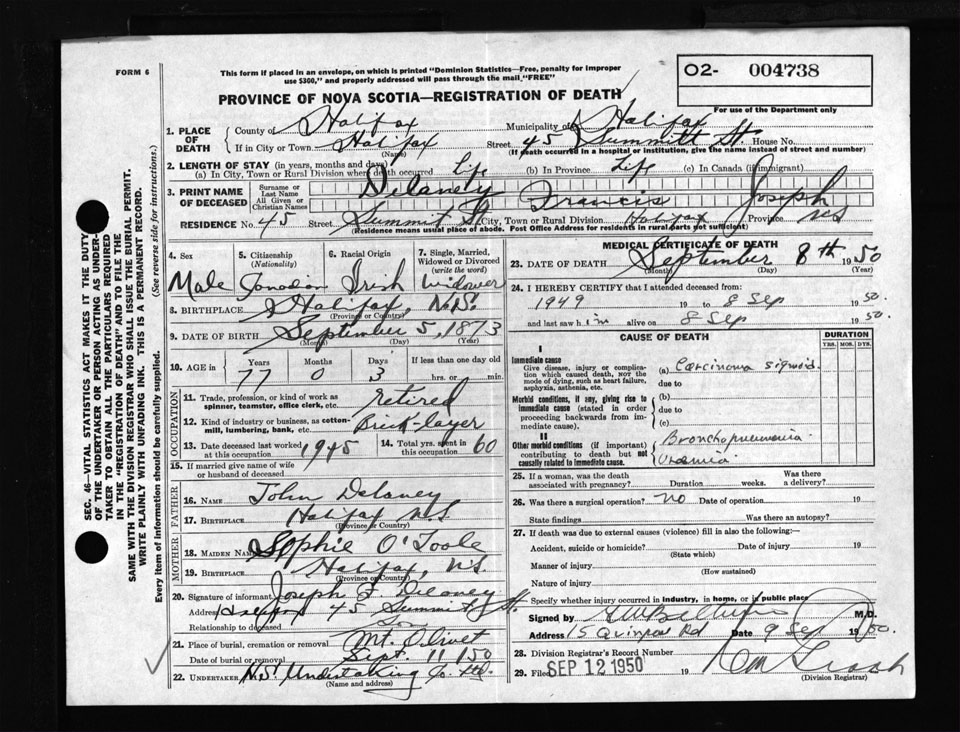 FORM 6
This form if placed in an envelope, on which is printed "Dominion Statistics—Free, penalty for improper
use $300," and properly addressed will pass through the mail "FREE"
O2- 004738
PROVINCE OF NOVA SCOTIA—REGISTRATION OF DEATH
For use of the Department only
1. PLACE OF DEATH County of Halifax Municipality of Halifax
If in City or Town Halifax Street 45 Summitt St. House No.
(Name) (If death occurred in a hospital or institution, give the name instead of street and number)
2. LENGTH OF STAY (in years, months and days)
(a) In City, Town or Rural Division where death occurred Life (b) In Province Life (c) In Canada (if immigrant)
3. PRINT NAME OF DECEASED Surname or Last Name Delaney
All Given or Christian Names Francis Joseph
RESIDENCE No. 45 Street Summit St City, Town or Rural Division Halifax Province NS
(Residence means usual place of abode. Post Office Address for residents in rural parts not sufficient)
4. Sex 5. Citizenship (Nationality) 6. Racial Origin 7. Single, Married, Widowed or Divorced (write the word)
Male Canadian Irish Widower
8. BIRTHPLACE Halifax, N.S.
(Province or Country)
9. DATE OF BIRTH September 5, 1873
(Month) (Day) (Year)
10. AGE in Years Months Days If less than one day old
77 0 3 hrs. or min.
OCCUPATION
11. Trade, profession, or kind of work as spinner, teamster, office clerk, etc. Retired
12. Kind of industry or business, as cotton-mill, lumbering, bank, etc. Brick-layer
13. Date deceased last worked at this occupation 1945 14. Total yrs. spent in this occupation 60
15. If married give name of wife or husband of deceased
FATHER
16. Name John Delaney
17. Birthplace Halifax N.S
(Province or Country)
MOTHER
18. Maiden Name Sophie O'Toole
19. Birthplace Halifax, N.S
(Province or Country)
20. Signature of informant Joseph F. Delaney
Address Halifax 45 Summit St.
Relationship to deceased Son
21. Place of burial, cremation or removal Mt. Olivet
Date of burial or removal Sept. 11/50
22. UNDERTAKER N.S. Undertaking Co. Ltd.
(Name and address)
MEDICAL CERTIFICATE OF DEATH
23. DATE OF DEATH September 8th 1950
(Month) (Day) (Year)
24. I HEREBY CERTIFY that I attended deceased from:
1949 19 to 8 Sep 1950.
and last saw him alive on 8 Sep 1950.
CAUSE OF DEATH DURATION
YRS. MOS. DYS.
I
Immediate cause
Give disease, injury or complication which caused death, NOT the mode of dying, such as heart failure, asphyxia, asthenia, etc.
(a) Carcinoma sigmoid.
due to
Morbid conditions, if any, giving rise to immediate cause (stated in order proceeding backwards from immediate cause).
(b)
due to
(c)
II
Other morbid conditions (if important) contributing to death but not causally related to immediate cause.
Bronchopneumonia
Uraemia
25. If a woman, was the death associated with pregnancy? Duration weeks. Was there a delivery?
26. Was there a surgical operation? No Date of operation 19
State findings Was there an autopsy?
27. If death was due to external causes (violence) fill in also the following:—
Accident, suicide or homicide? Date of injury 19
(State which)
Manner of injury
(How sustained)
Nature of injury
Specify whether injury occurred in industry, in home, or in public place
Signed by M.D.
Address 15 Quinpool Rd Date 9 Sep 1950.
28. Division Registrar's Record Number
29. Filed SEP 12 1950
(Division Registrar)
SEC. 46—VITAL STATISTICS ACT MAKES IT THE DUTY
OF THE UNDERTAKER OR PERSON ACTING AS UNDER-
TAKER TO OBTAIN ALL THE PARTICULARS REQUIRED
IN THE "REGISTRATION OF DEATH" AND TO FILE THE
SAME WITH THE DIVISION REGISTRAR WHO SHALL ISSUE THE BURIAL PERMIT.
WRITE PLAINLY WITH UNFADING INK. THIS IS A PERMANENT RECORD.
Every item of information should be carefully supplied. (See reverse side for instructions.)